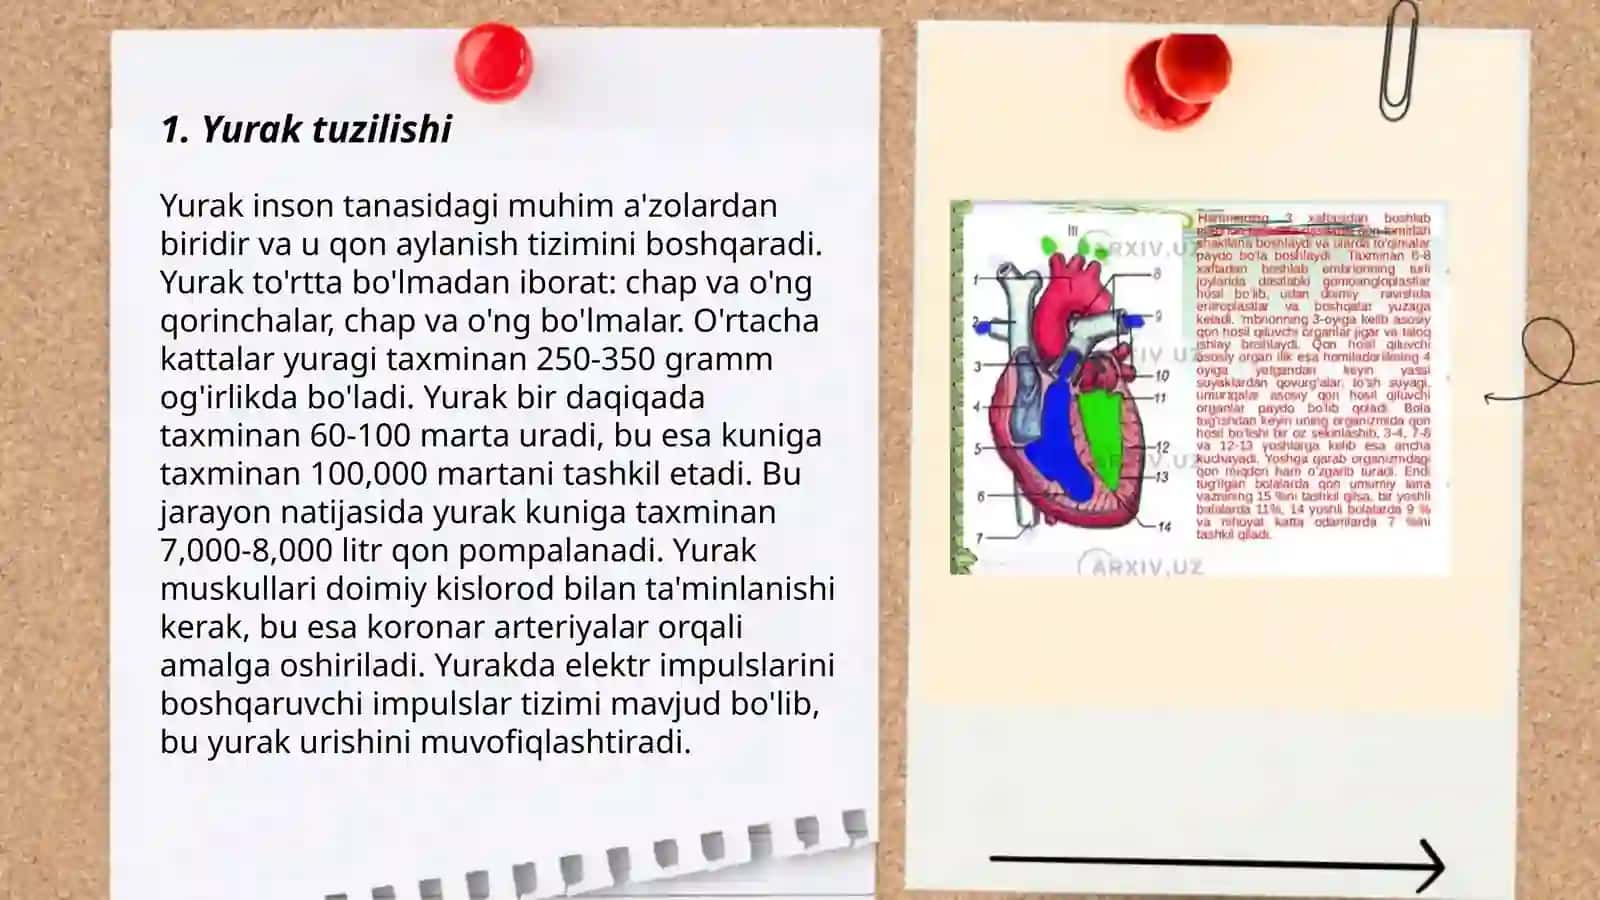 1. Yurak tuzilishi
Yurak inson tanasidagi muhim a'zolardan
biridir va u qon aylanish tizimini boshqaradi.
Yurak to'rtta bo'lmadan iborat: chap va o'ng
qorinchalar, chap va o'ng bo'lmalar. O'rtacha
kattalar yuragi taxminan 250-350 gramm
og'irlikda bo'ladi. Yurak bir daqiqada
taxminan 60-100 marta uradi, bu esa kuniga
taxminan 100,000 martani tashkil etadi. Bu
jarayon natijasida yurak kuniga taxminan
7,000-8,000 litr qon pompalanadi. Yurak
muskullari doimiy kislorod bilan ta'minlanishi
kerak, bu esa koronar arteriyalar orqali
amalga oshiriladi. Yurakda elektr impulslarini
boshqaruvchi impulslar tizimi mavjud bo'lib,
bu yurak urishini muvofiqlashtiradi.
III
1
2
3
4
5
6
7
8
9
10
11
12
13
14
3 xaftasidan boshlab
qon tomirlari
shakllana boshlaydi va ularda to'qimalar
paydo bo'la boshlaydi. Taxminan 6-8
xaftadan boshlab embrionning turli
joylarida dastlabki gomoangioplastlar
hosil bo'lib, udan doimiy ravishda
eritroplastlar va boshqalar yuzaga
keladi. 'mbrionning 3-oyiga kelib asosiy
qon hosil qiluvchi organlar jigar va taloq
ishlay boshlaydi. Qon hosil qiluvchi
asosiy organ ilik esa homiladorlikning 4
oyiga yetgandan keyin yassi
suyaklardan qovurg'alar, to'sh suyagi,
umurtqalar asosiy qon hosil qiluvchi
organlar paydo bo'lib qoladi. Bola
tug'ishdan keyin uning organizmida qon
hosil bo'lishi bir oz sekinlashib, 3-4, 7-8
va 12-13 yoshlarga kelib esa ancha
kuchayadi. Yoshga qarab organizmdagi
qon miqdori ham o'zgarib turadi. Endi
tug'ilgan bolalarda qon umumiy tana
vaznining 15 %ini tashkil qilsa, bir yoshli
bolalarda 11%, 14 yoshli bolalarda 9 %
va nihoyat katta odamlarda 7 %ini
tashkil qiladi.
ARXIV.UZ